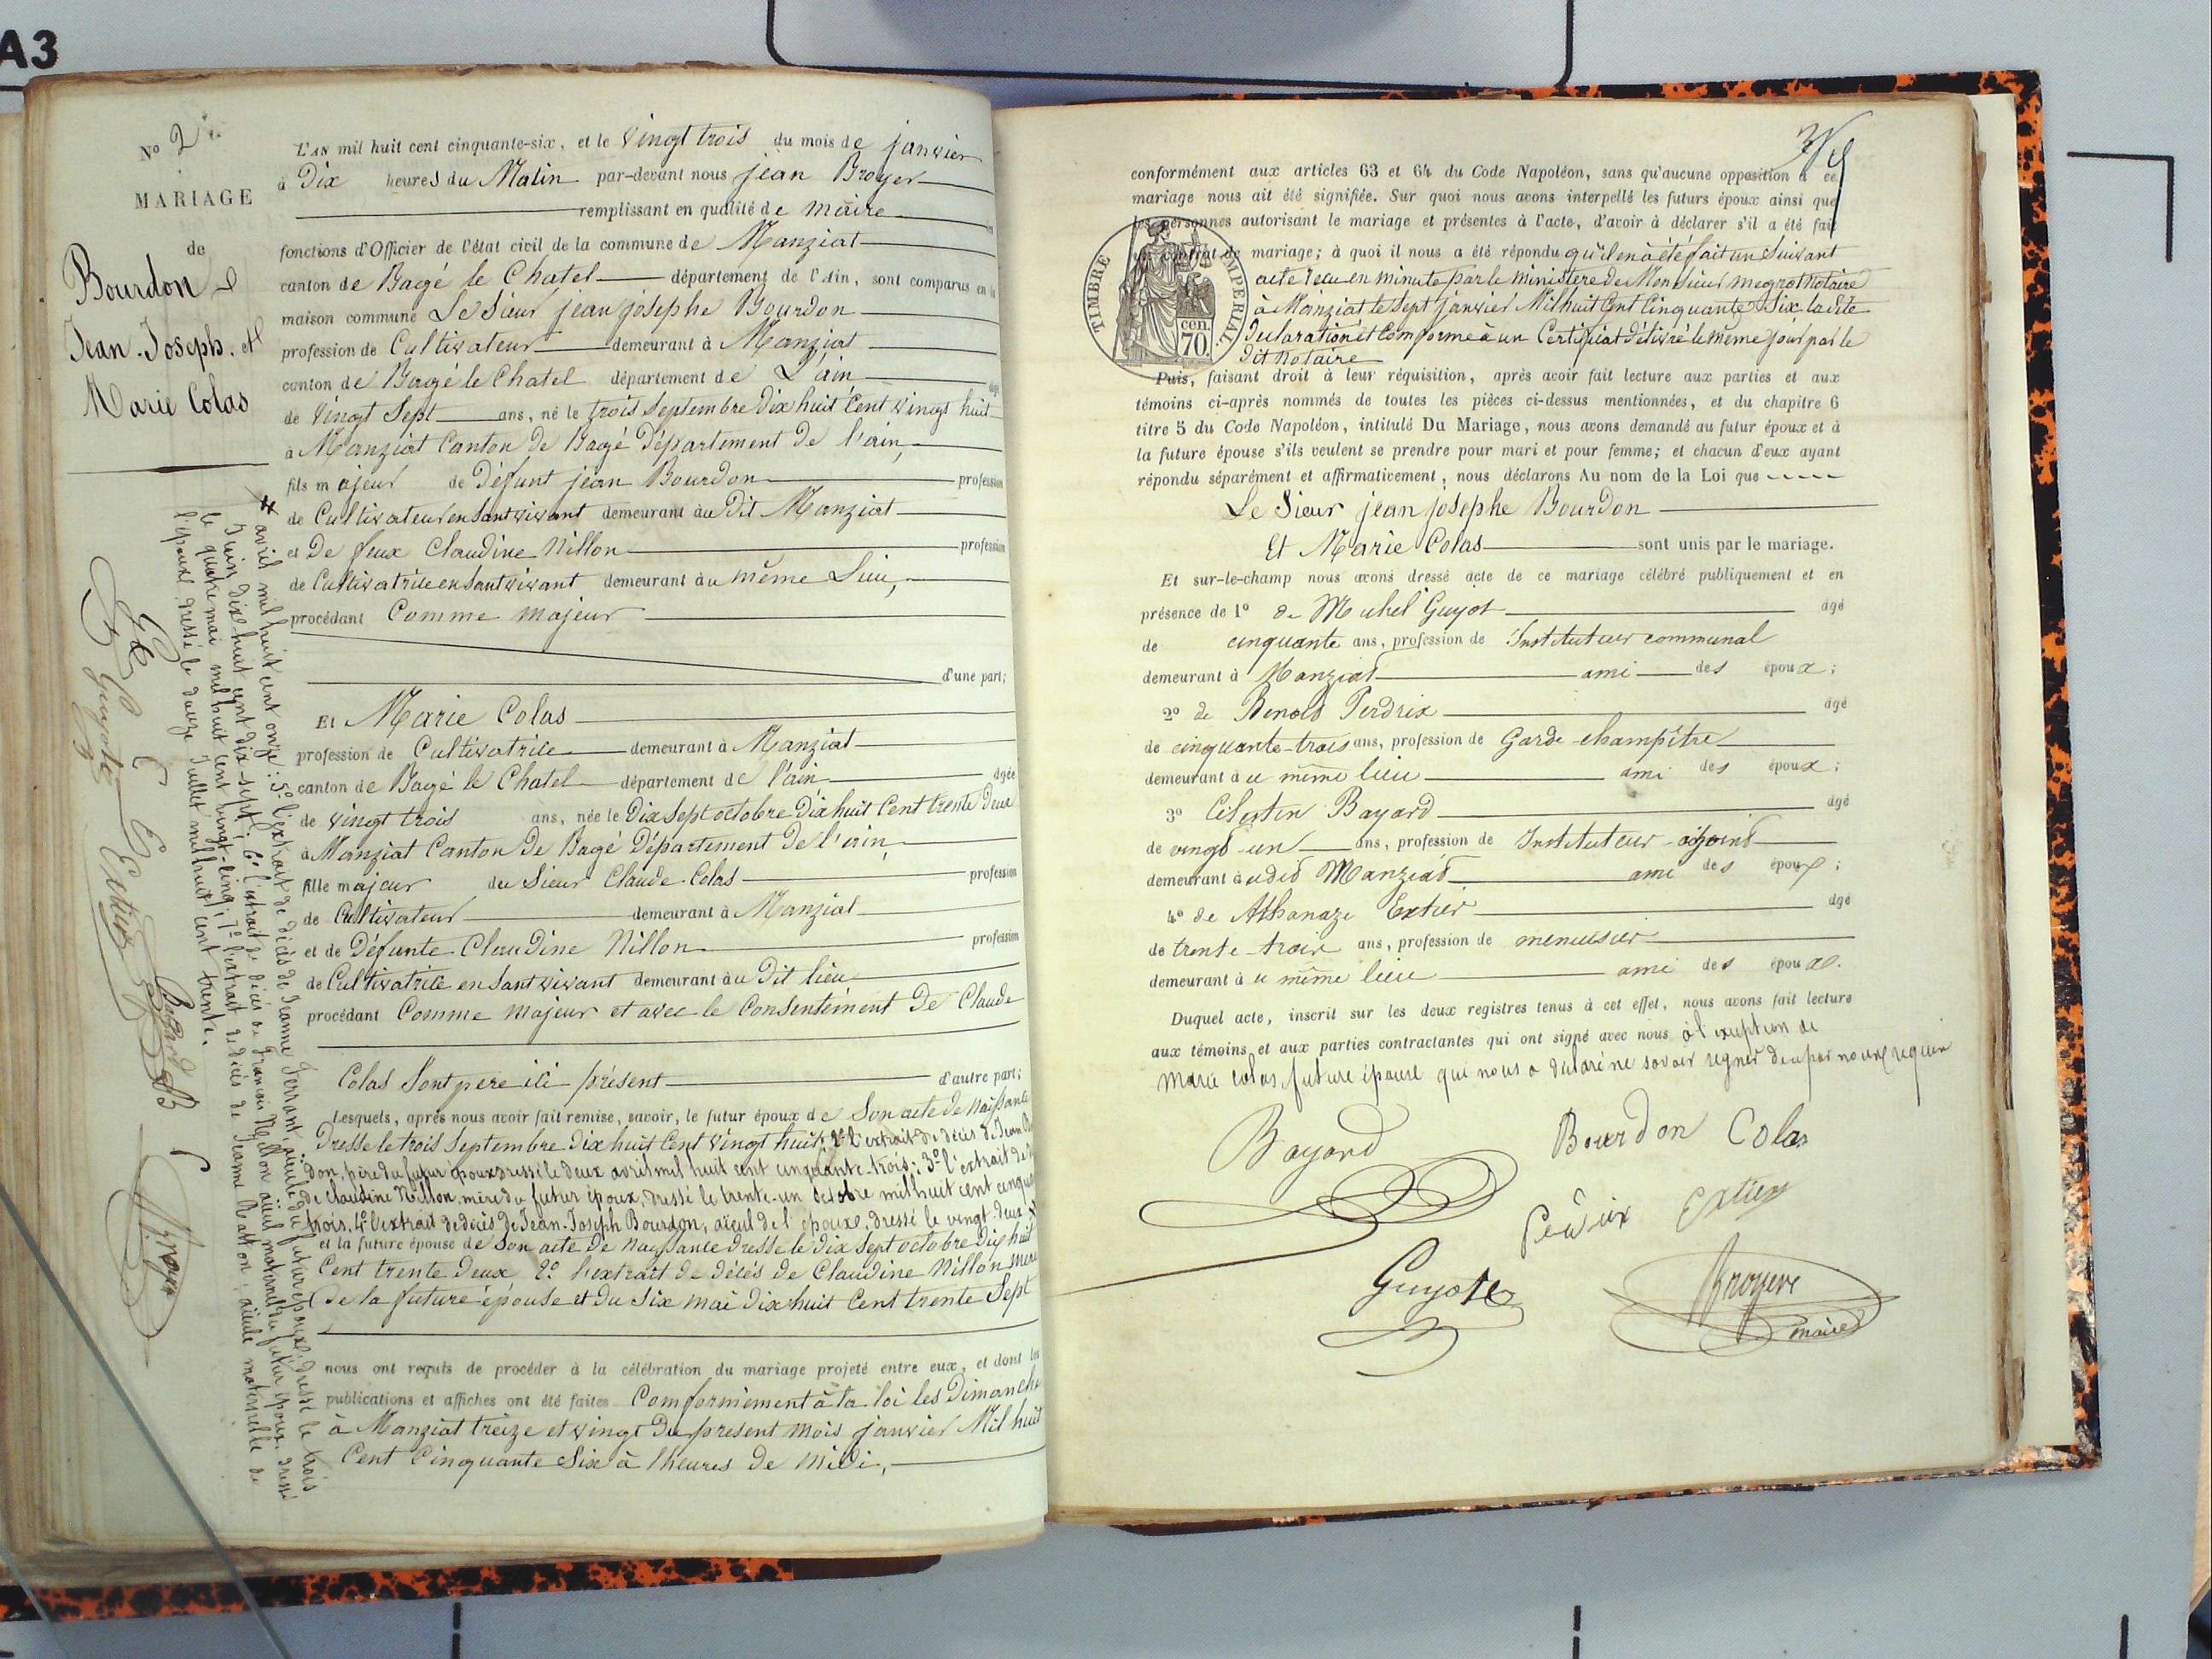 A3
N° 2
MARIAGE
de
Bourdon
Jean-Joseph. et
Marie Colas
L'AN mil huit cent cinquante-six, et le vingt trois du mois de janvier
à Dix heures du Matin par-devant nous jean Broyer
remplissant en qualité de maire
fonctions d'Officier de l'état civil de la commune de Manziat
canton de Bagé le Chatel département de l'Ain, sont comparus en la
maison commune Le Sieur jean josephe Bourdon
profession de Cultivateur demeurant à Manziat
canton de Bagé le Chatel département de L'ain
de vingt Sept ans, né le trois Septembre Dix huit Cent vingt huit
à Manziat Canton de Bagé Département de l'ain,
fils majeur de Défunt jean Bourdon profession
de Cultivateur en Sant vivant demeurant au Dit Manziat
et De feux Claudine Nillon profession
de Cultivatrice en Sant vivant demeurant au même Lieu,
procédant Comme majeur
d'une part;
Et Marie Colas
profession de Cultivatrice demeurant à Manziat
canton de Bagé le Chatel département de l'ain âgée
de vingt trois ans, née le Dix Sept octobre Dix huit Cent trente Deux
à Manziat Canton De Bagé Département De l'ain,
fille majeur du Sieur Claude Colas profession
de Cultivateur demeurant à Manziat
et de Défunte Claudine Nillon profession
de Cultivatrice en Sant vivant demeurant au Dit lieu
procédant Comme majeur et avec le Consentement De Claude
Colas Sont pere ici présent d'autre part;
Lesquels, après nous avoir fait remise, savoir, le futur époux de Son acte de Naissance
Dressé le trois Septembre Dix huit Cent vingt huit; 2° l'extrait de décès de Jean
don, père du futur époux dressé le deux avril mil huit cent cinquante-trois; 3° l'extrait de
de Claudine Nillon, mère du futur époux, dressé le trente-un octobre mil huit cent cinquante
trois, 4° l'extrait de décès de Jean-Joseph Bourdon, aïeul de l'époux, dressé le vingt deux
et la future épouse de Son acte de Naissance Dressé le Dix Sept octobre Dix huit
Cent trente Deux, 2° l'extrait de Décés de Claudine Nillon mere
De la future épouse et du Six mai Dix huit Cent trente Sept
nous ont requis de procéder à la célébration du mariage projeté entre eux, et dont les
publications et affiches ont été faites Comformément à la loi les Dimanche
à Manziat treize et vingt Du present mois janvier Mil huit
Cent Cinquante Six à l'heures de midi,
avril mil huit cent onze; 5° l'extrait de décès de Jeanne Ferrant, aïeule du futur époux, dressé le trois
Juin dix-huit cent dix-sept; 6° l'extrait de décès de François Nillon aïeul maternel du futur époux dressé
le quatre mai mil huit cent vingt-cinq; 7° l'extrait de décès de Jeanne Ratton, aïeule maternelle de
l'époux, dressé le douze Juillet mil huit cent trente.
Guyote
Extier
conformément aux articles 63 et 64 du Code Napoléon, sans qu'aucune opposition à ce
mariage nous ait été signifiée. Sur quoi nous avons interpellé les futurs époux ainsi que
les personnes autorisant le mariage et présentes à l'acte, d'avoir à déclarer s'il a été fait
un contrat de mariage; à quoi il nous a été répondu qu'il en à été fait un Suivant
acte recu en minute par le ministere de Mon Sieur megrat Notaire
à Manziat le Sept janvier Mil huit Cent Cinquante Six la dite
Declaration et Comforme à un Certificat Délivré le même jour par le
dit Notaire
TIMBRE IMPERIAL
cen. 70.
Puis, faisant droit à leur réquisition, après avoir fait lecture aux parties et aux
témoins ci-après nommés de toutes les pièces ci-dessus mentionnées, et du chapitre 6
titre 5 du Code Napoléon, intitulé Du Mariage, nous avons demandé au futur époux et à
la future épouse s'ils veulent se prendre pour mari et pour femme; et chacun d'eux ayant
répondu séparément et affirmativement, nous déclarons Au nom de la Loi que
Le Sieur jean josephe Bourdon
Et Marie Colas sont unis par le mariage.
Et sur-le-champ nous avons dressé acte de ce mariage célébré publiquement et en
présence de 1° de Michel Guyot âgé
de cinquante ans, profession de Instituteur communal
demeurant à Manziat ami des époux;
2° de Benoit Perdrix âgé
de cinquante-trois ans, profession de Garde-champêtre
demeurant àu même lieu ami des époux;
3° Celestin Bayard âgé
de vingt-un ans, profession de Instituteur adjoint
demeurant àudit Manziat ami des époux;
4° de Athanaze Extier âgé
de trente-trois ans, profession de menuisier
demeurant àu même lieu ami des époux.
Duquel acte, inscrit sur les deux registres tenus à cet effet, nous avons fait lecture
aux témoins et aux parties contractantes qui ont signé avec nous à l'exeption de
Marie Colas, future épouse qui nous a déclaré ne savoir signer de ce par nous requise
Bayard
Bourdon Colas
Perdrix Extier
Guyote
Broyere
maire